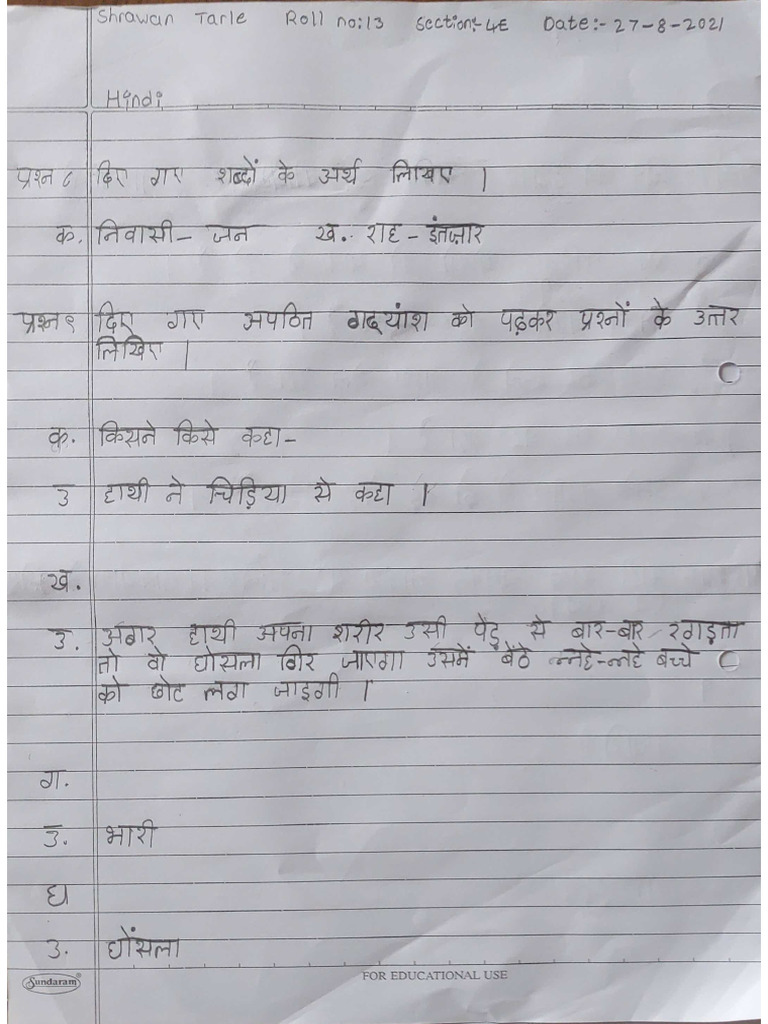 Shrawan Tarle Roll no:13 Section:-4E Date:-27-8-2021
Hindi
प्रश्न ८ दिए गए शब्दों के अर्थ लिखिए |
क. निवासी- जन ख. राह - इंतज़ार
प्रश्न ९ दिए गए अपठित गद्यांश को पढ़कर प्रश्नों के उत्तर
लिखिए |
क. किसने किसे कहा-
उ हाथी ने चिड़िया से कहा |
ख.
उ. अगर हाथी अपना शरीर उसी पेड़ से बार-बार रगड़ता
तो वो घोसला गिर जाएगा उसमें बैठे नन्हे-नन्हे बच्चे
को चोट लग जाइगी |
ग.
उ. भारी
घ
उ. घोंसला
Sundaram
FOR EDUCATIONAL USE